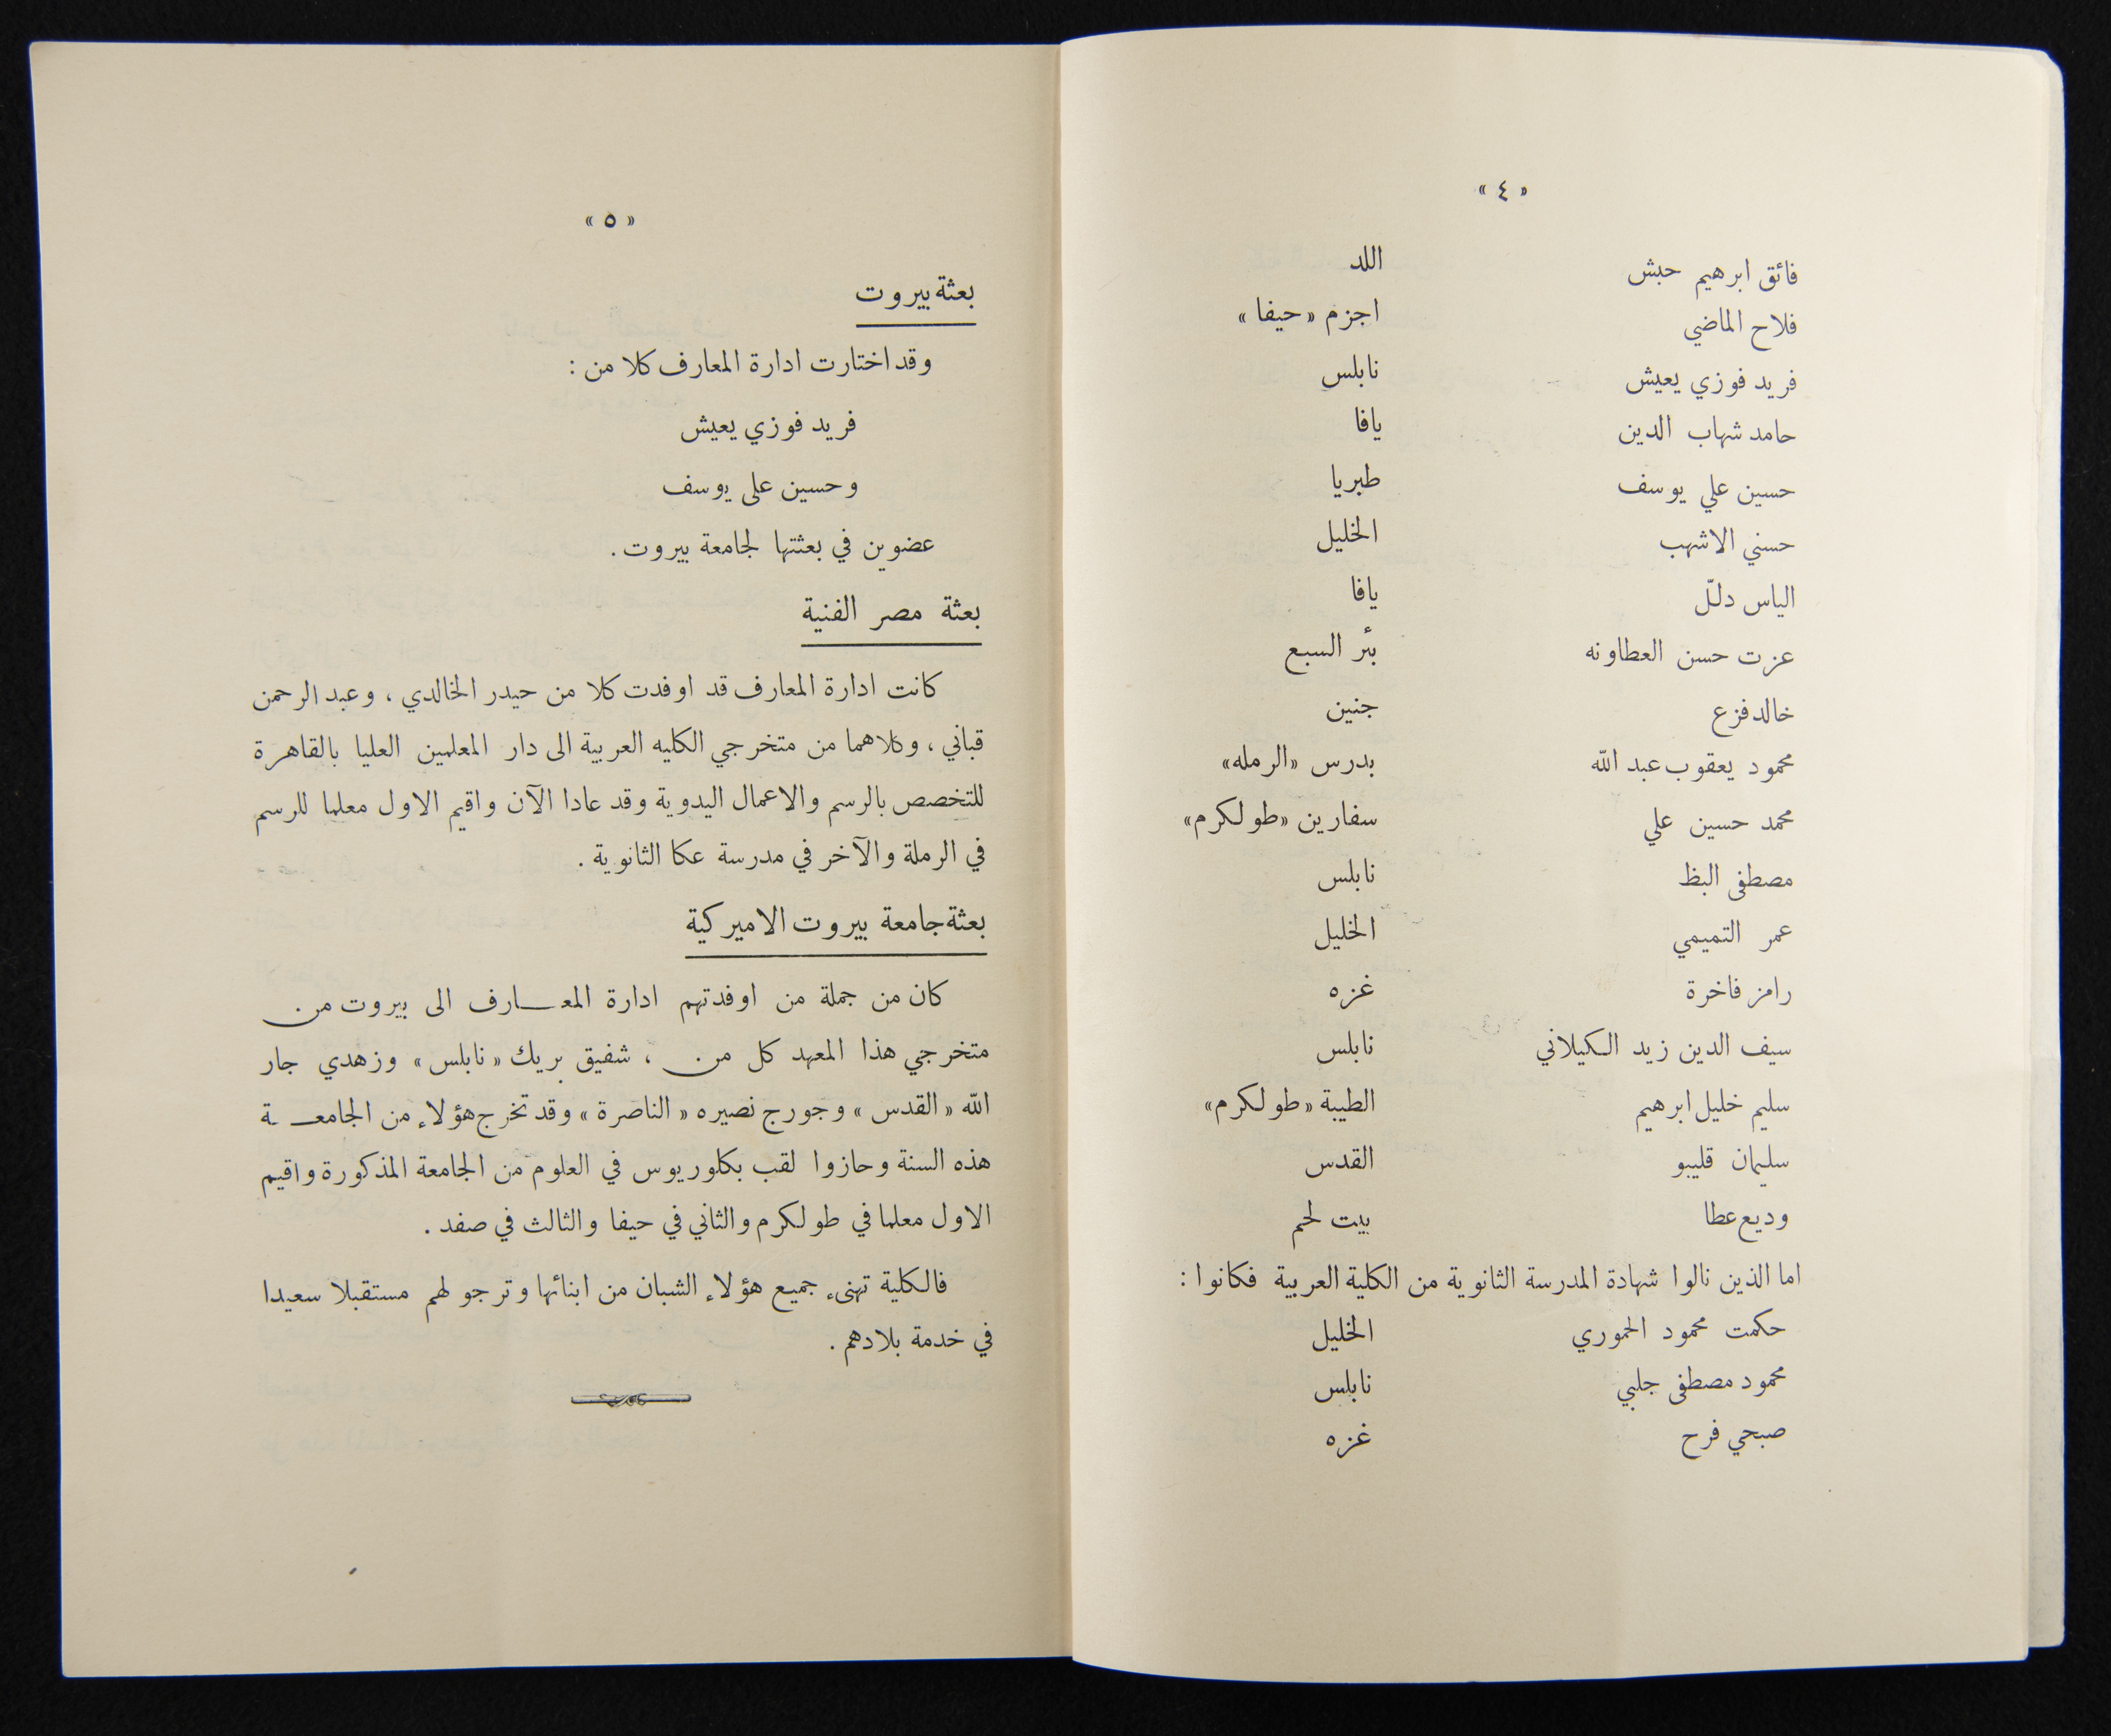 « ٤ »
فائق ابرهيم حبش اللد
فلاح الماضي اجزم «حيفا»
فريد فوزي يعيش نابلس
حامد شهاب الدين يافا
حسين علي يوسف طبريا
حسني الاشهب الخليل
الياس دلـّل يافا
عزت حسن العطاونه بئر السبع
خالد فزع جنين
محمود يعقوب عبد الله بدرس «الرمله»
محمد حسين علي سفارين «طولكرم»
مصطفى البظ نابلس
عمر التميمي الخليل
رامز فاخرة غزه
سيف الدين زيد الكيلاني نابلس
سليم خليل ابرهيم الطيبة «طولكرم»
سليمان قليبو القدس
وديع عطا بيت لحم
اما الذين نالوا شهادة المدرسة الثانوية من الكلية العربية فكانوا :
حكمت محمود الحموري الخليل
محمود مصطفى جلبي نابلس
صبحي فرح غزه
« ٥ »
بعثة بيروت
وقد اختارت ادارة المعارف كلا من :
فريد فوزي يعيش
وحسين على يوسف
عضوين في بعثتها لجامعة بيروت .
بعثة مصر الفنية
كانت ادارة المعارف قد اوفدت كلا من حيدر الخالدي ، وعبد الرحمن
قباني ، وكلاهما من متخرجي الكليه العربية الى دار المعلمين العليا بالقاهرة
للتخصص بالرسم والاعمال اليدوية وقد عادا الآن واقيم الاول معلما للرسم
في الرملة والآخر في مدرسة عكا الثانوية .
بعثة جامعة بيروت الاميركية
كان من جملة من اوفدتهم ادارة المعـــارف الى بيروت من
متخرجي هذا المعهد كل من ، شفيق بريك «نابلس» وزهدي جار
الله «القدس» وجورج نصيره «الناصرة» وقد تخرج هؤلاء من الجامعــة
هذه السنة وحازوا لقب بكلوريوس في العلوم من الجامعة المذكورة واقيم
الاول معلما في طولكرم والثاني في حيفا والثالث في صفد .
فالكلية تهنىء جميع هؤلاء الشبان من ابنائها وترجو لهم مستقبلا سعيدا
في خدمة بلادهم .